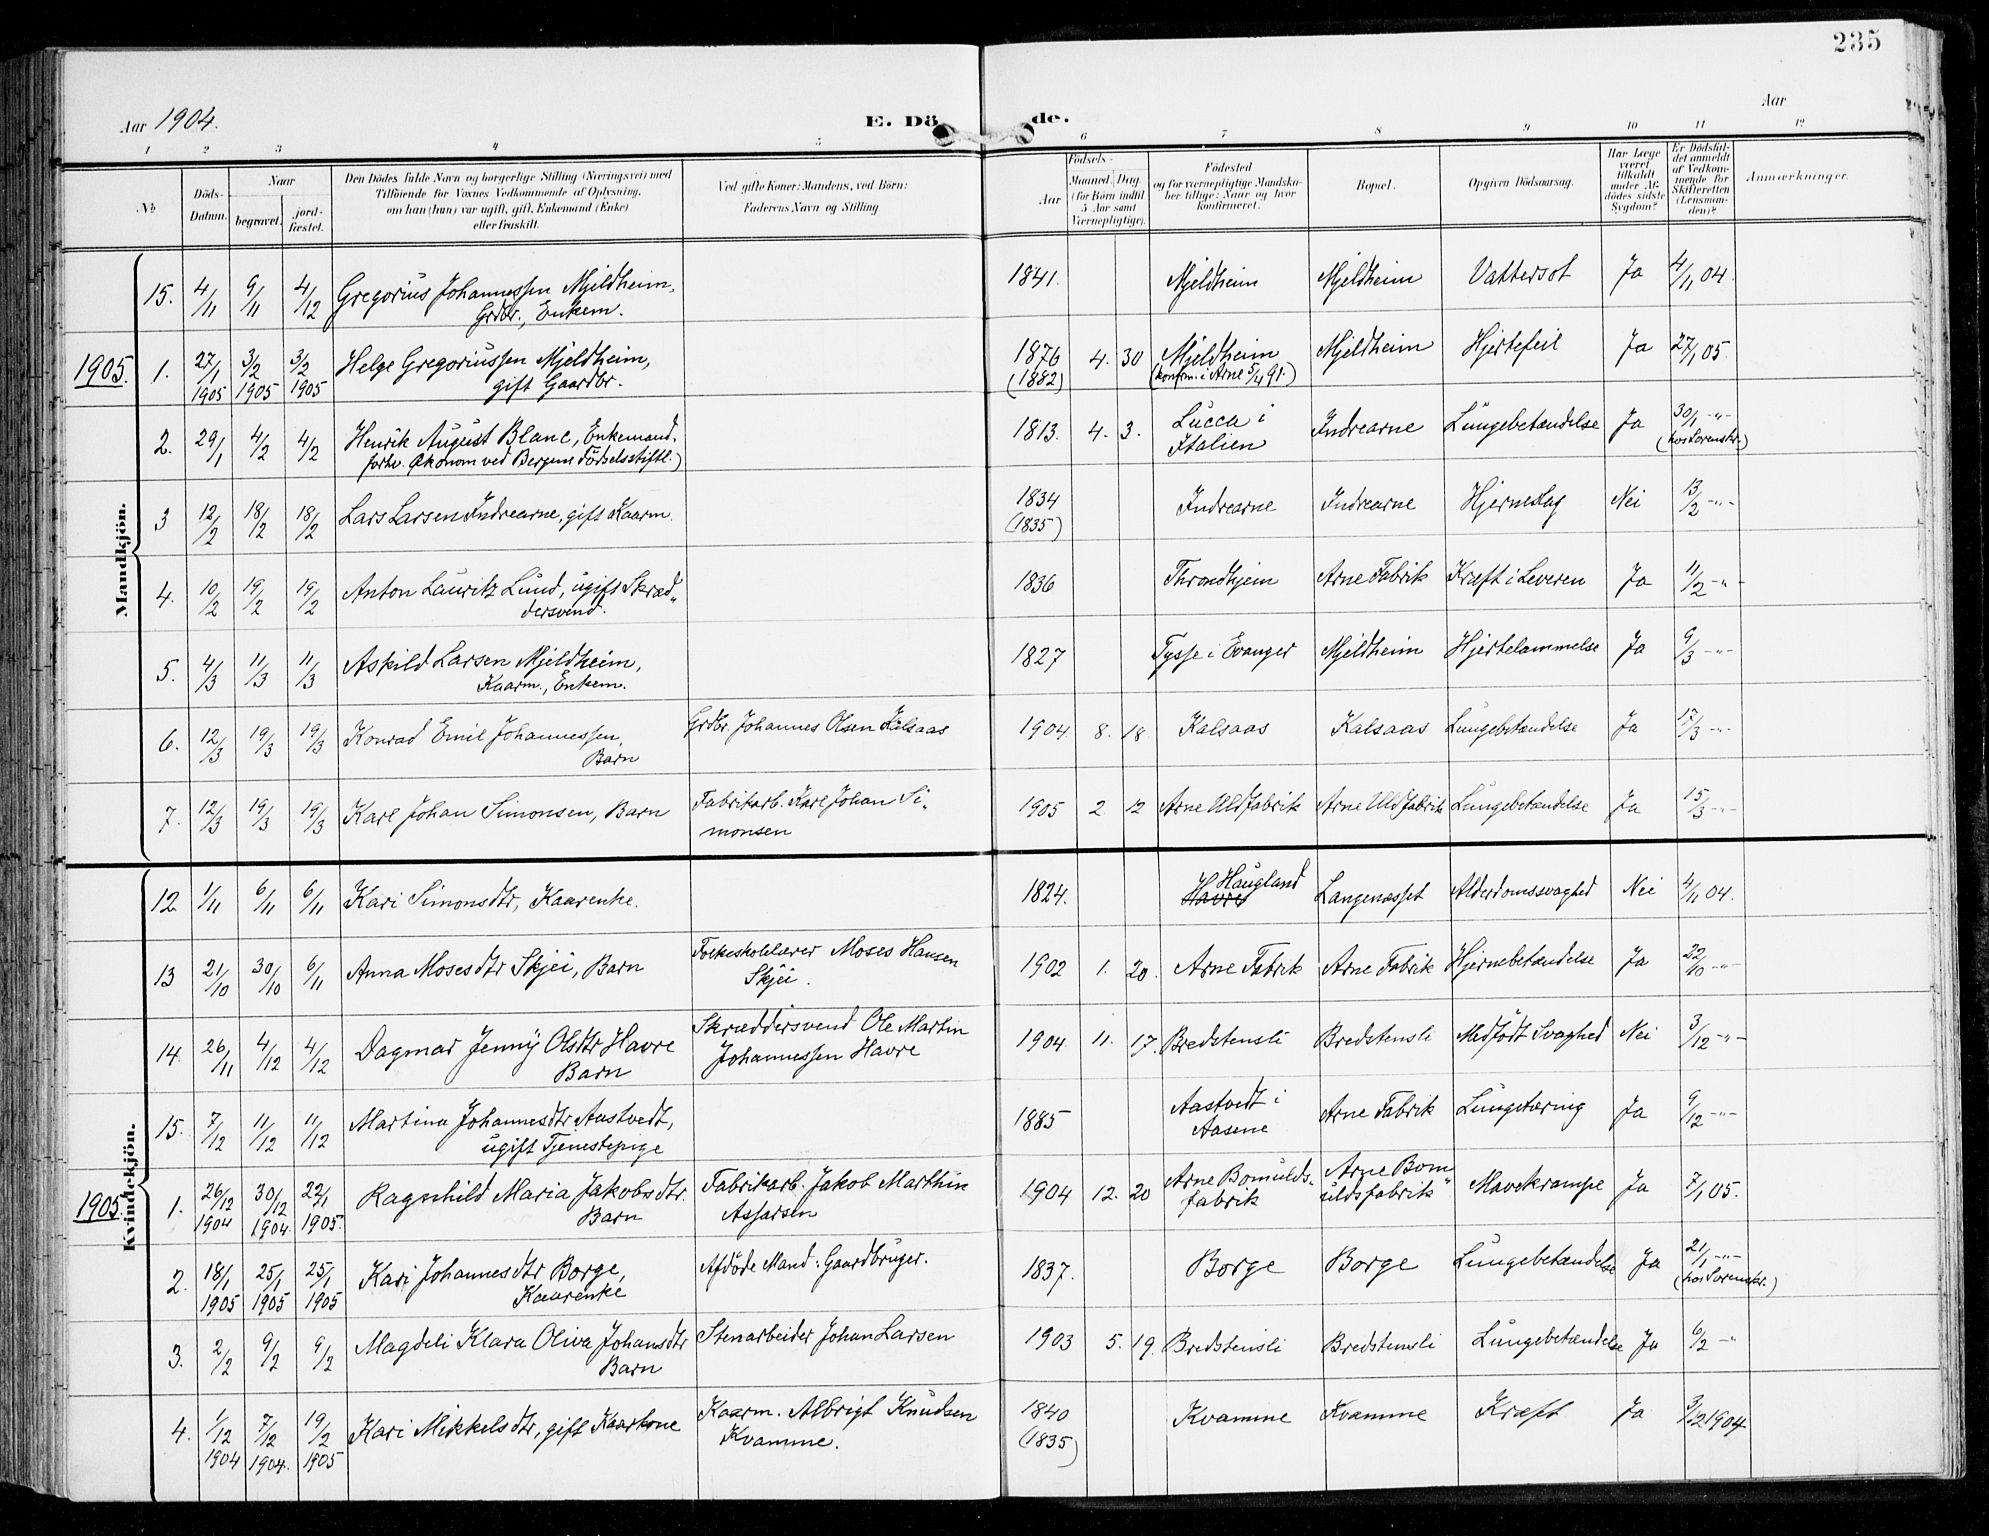 235
Aar 1904.
E. Dö de.
Aar
1 2 3 4 5 6 7 8 9 10 11 12
No
Döds-Datum.
Naar
begravet.
jord-fæstet.
Den Dödes fulde Navn og borgerlige Stilling (Næringsvei) med
Tilföiende for Voxnes Vedkommende af Oplysning,
om han (hun) var ugift, gift, Enkemand (Enke)
eller fraskilt.
Ved gifte Koner: Mandens, ved Börn:
Faderens Navn og Stilling
Födsels-
Aar
Maaned. Dag.
(for Börn indtil
5 Aar samt
Værnepligtige).
Födested
og for værnepligtige Mandska-
ber tillige: Naar og hvor
konfirmeret.
Bopæl.
Opgiven Dödsaarsag.
Har Læge
været
tilkaldt
under Af-
dödes sidste
Sygdom?
Er Dödsfal-
det anmeldt
af Vedkom-
mende for
Skifteretten
(Lensman-
den)?
Anmærkninger.
Mandkjön.
15. 4/11 9/11 4/12 Gregorius Johannessen Mjeldheim, 1841. Mjeldheim Mjeldheim Vattersot Ja 4/11 04.
Grdbr., Enkem.
1905. 1. 27/1 1905 3/2 1905 3/2 1905 Helge Gregoriussen Mjeldheim, 1876 4. 30 Mjeldheim Mjeldheim Hjertefeil Ja 27/1 05.
gift Gaardbr. (1882) (konfirm. i Arne 5/4 91.)
2. 29/1 4/2 4/2 Henrik August Blanc, Enkemand. 1813. 4. 3. Lucca i Italien Indrearne Lungebetændelse Ja 30/1 -"-
forhv. Økonom ved Bergens Födselsstiftl.) (hos Sorenskr.)
3 12/2 18/2 18/2 Lars Larsen Indrearne, gift Kaarm. 1834 (1835) Indrearne Indrearne Hjerneslag Nei 13/2 -"-
4. 10/2 19/2 19/2 Anton Lauritz Lund, ugift Skræd" 1836 Throndhjem Arne Fabrik Kræft i Leveren Ja 11/2 -"-
dersvend.
5. 4/3 11/3 11/3 Askild Larsen Mjeldheim, 1827 Tysse i Evanger Mjeldheim Hjertelammelse Ja 9/3 -"-
Kaarm., Enkem.
6. 12/3 19/3 19/3 Konrad Emil Johannessen, Grdbr. Johannes Olsen Kalsaas 1904 8. 18 Kalsaas Kalsaas Lungebetændelse Ja 17/3 -"-
Barn
7. 12/3 19/3 19/3 Karl Johan Simonsen, Barn Fabrikarb. Karl Johan Si- 1905 2 12 Arne Uldfabrik Arne Uldfabrik Lungebetændelse Ja 15/3 -"-
monsen
Kvindekjön.
12. 1/11 6/11 6/11 Kari Simonsdtr, Kaarenke. 1824. Havre Haugland Langenæsset Alderdomssvaghed Nei 4/11 04.
13 21/10 30/10 6/11 Anna Mosesdtr Skjei, Barn Folkeskolelærer Moses Hansen 1902 1. 20. Arne Fabrik Arne Fabrik Hjernebetændelse Ja 22/10 -"-
Skjei.
14. 26/11 4/12 4/12 Dagmar Jenny Olsdtr Havre Skræddersvend Ole Martin 1904. 11. 17. Bredstensli Bredstensli Medfödt Svaghed Nei 3/12 -"-
Barn Johannessen Havre
15. 7/12 11/12 11/12 Martina Johannesdtr Aastvedt, 1885 Aastvedt i Aasene Arne Fabrik Lungetæring Ja 9/12 -"-
ugift Tjenestepige
1905. 1. 26/12 1904 30/12 1904. 22/1 1905. Ragnhild Maria Jakobsdtr. Fabrikarb. Jakob Marthin 1904 12. 20 Arne Bomulds- Arne Bom" Mavekrampe Ja 7/1 05.
Barn Assarsen fabrik uldsfabrik
2. 18/1 1905 25/1 1905 25/1 1905 Kari Johannesdtr Borge, Afdöde Mand: Gaardbruger. 1837. Borge Borge Lungebetændelse Ja 21/1 -"-
Kaarenke (hos Sorenskr.)
3. 2/2 9/2 9/2 Magdeli Klara Oliva Johansdtr Stenarbeider Johan Larsen 1903 5. 19. Bredstensli Bredstensli Lungebetændelse Ja 6/2 -"
Barn
4. 1/12 1904 7/12 1904. 19/2 1905 Kari Mikkelsdtr, gift Kaarkone Kaarm. Albrigt Knudsen 1840 (1835) Kvamme Kvamme Kræft Ja 3/12 1904
Kvamme.